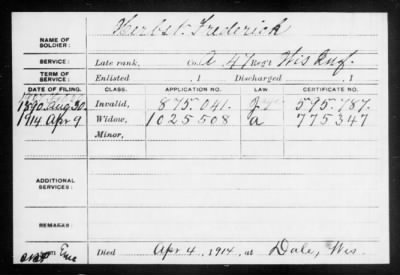 NAME OF SOLDIER: Herbst, Frederick
SERVICE: Late rank, Co. A 47 Reg't Wis Inf.
TERM OF SERVICE: Enlisted , 1 Discharged , 1
DATE OF FILING. CLASS. APPLICATION NO. LAW CERTIFICATE NO.
1890. Aug 30. Invalid, 875.041. 595.787.
1914 Apr 9 Widow, 1025508 a 775347
Minor,
ADDITIONAL SERVICES:
REMARKS:
Died Apr 4, 1914, at Dale, Wis.